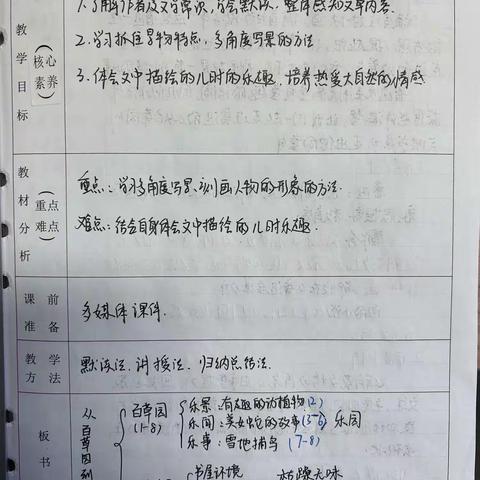 教学目标(核心素养)
1.了解作者及文学常识,学会默读,整体感知文章内容.
2.学习抓住景物特点,多角度写景的方法
3.体会文中描绘的儿时的乐趣,培养热爱大自然的情感
教材分析(重点难点)
重点:学习多角度写景、刻画人物的形象的方法.
难点:结合自身体会文中描绘的儿时乐趣.
课前准备
多媒体课件.
教学方法
默读法.讲授法.归纳总结法.
板书
从百草园到
百草园(1-8)
乐景:有趣的动植物(2)
乐闻:美女蛇的故事(3-6)乐园
乐事:雪地捕鸟(7-8)
书屋环境
枯燥无味